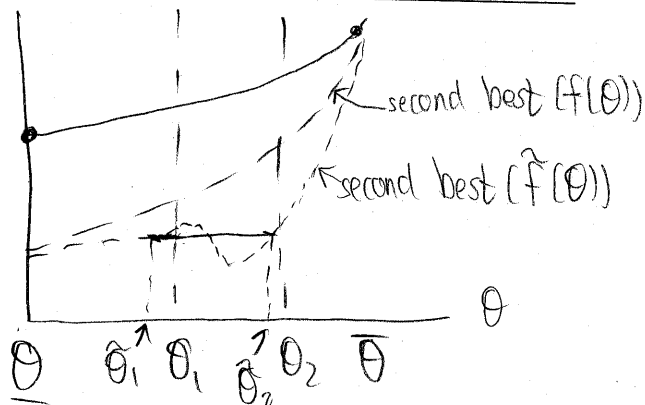 second best (f(θ))
second best (f̃(θ))
θ
θ̲ θ̂₁ θ₁ θ̂₂ θ₂ θ̅